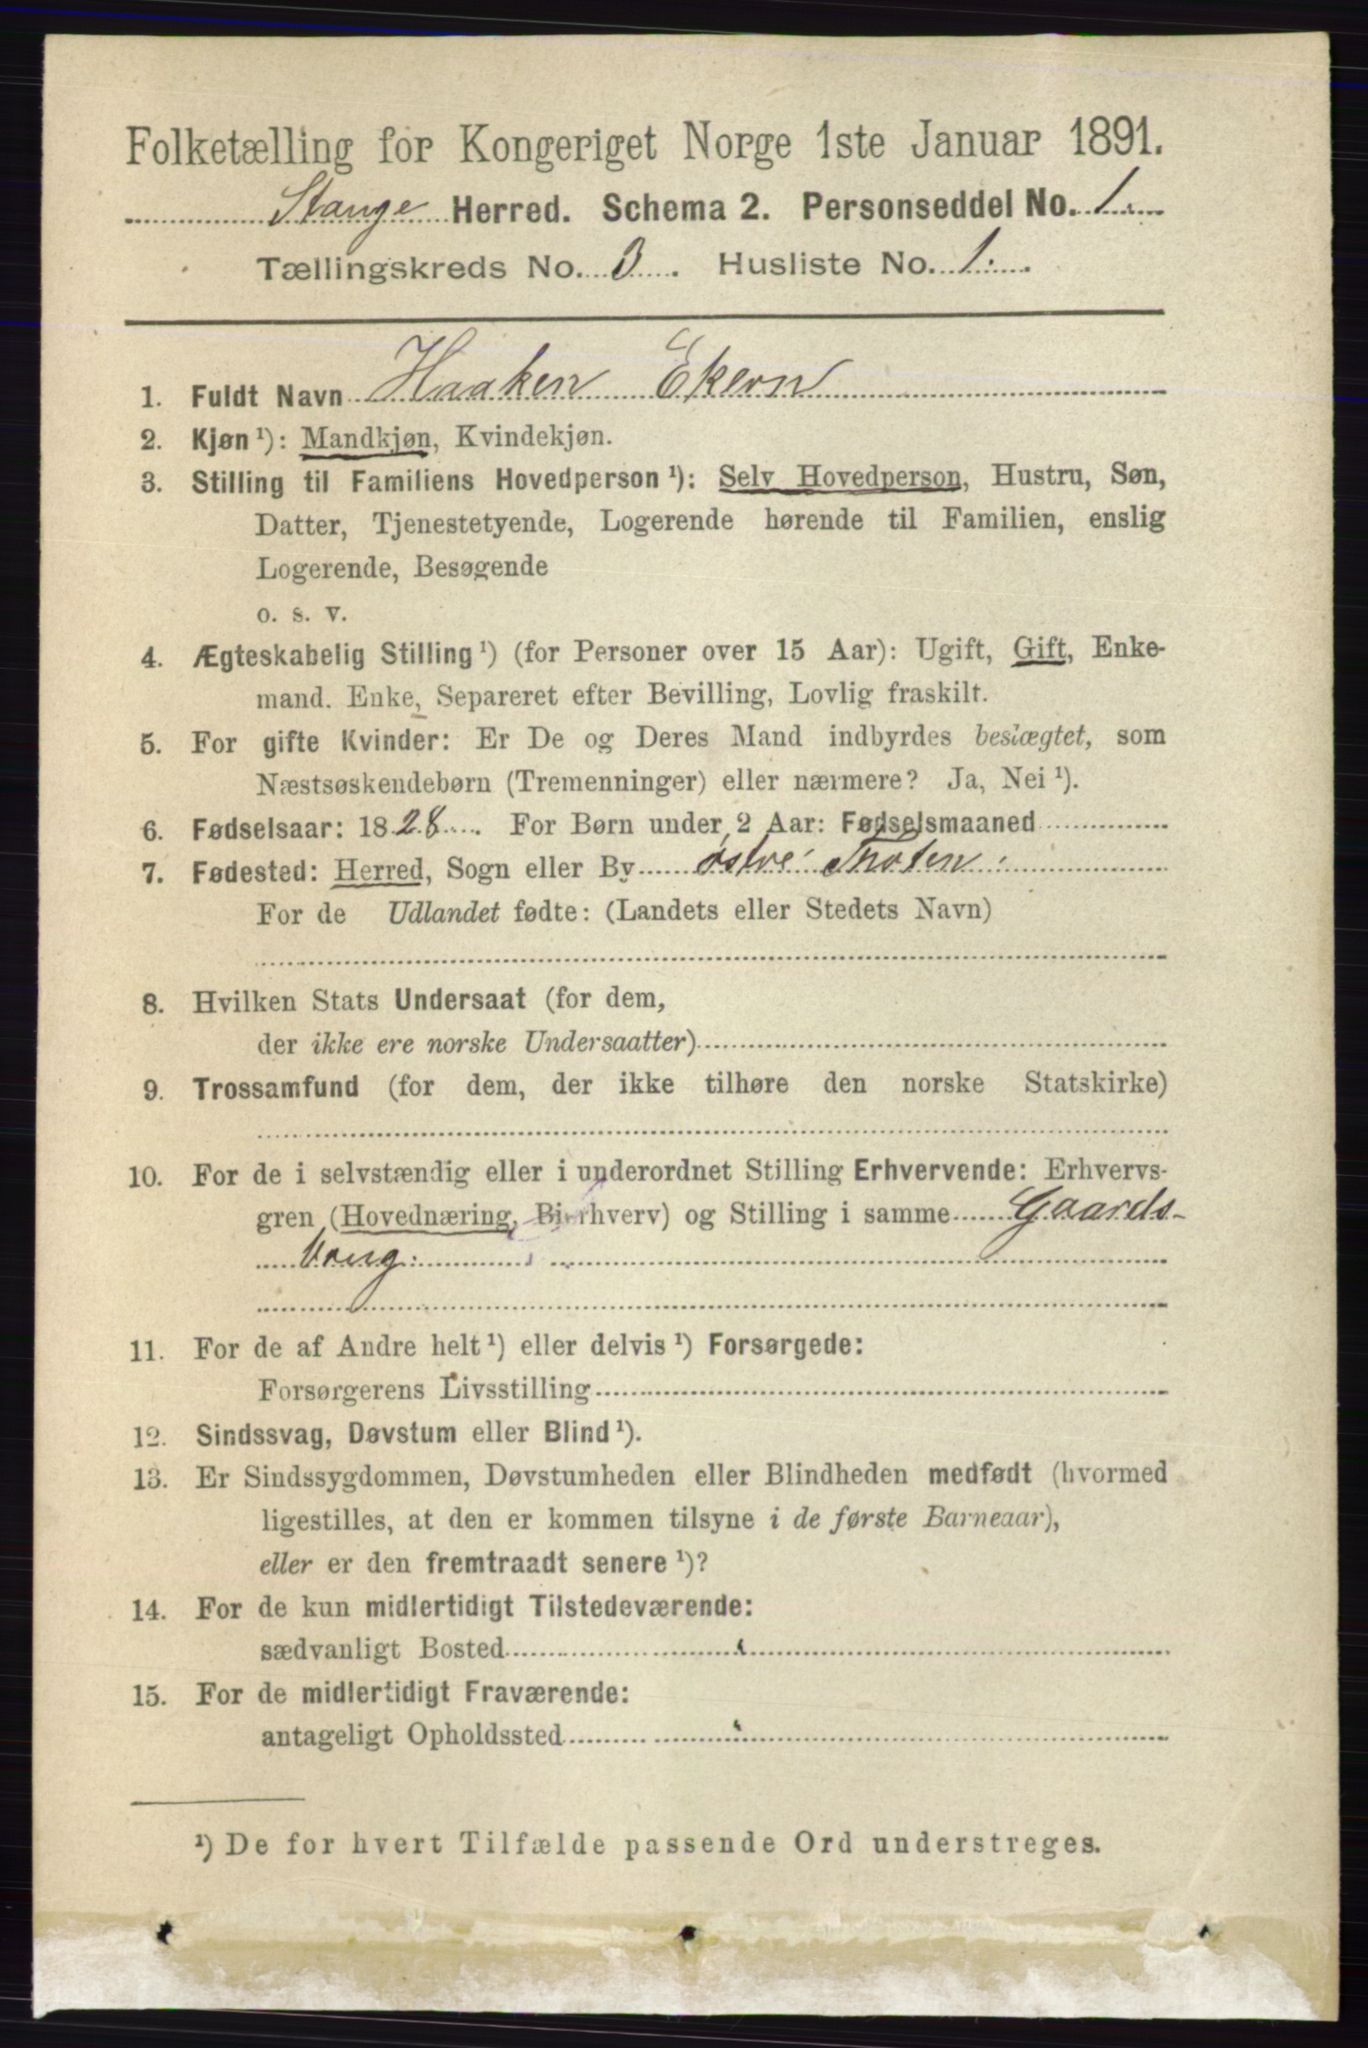 Folketælling for Kongeriget Norge 1ste Januar 1891.
Stange Herred. Schema 2. Personseddel No. 1.
Tællingskreds No. 3. Husliste No. 1.
1. Fuldt Navn Haaken Ekern
2. Kjøn ¹): Mandkjøn, Kvindekjøn.
3. Stilling til Familiens Hovedperson ¹): Selv Hovedperson, Hustru, Søn,
Datter, Tjenestetyende, Logerende hørende til Familien, enslig
Logerende, Besøgende
o. s. v.
4. Ægteskabelig Stilling ¹) (for Personer over 15 Aar): Ugift, Gift, Enke-
mand. Enke, Separeret efter Bevilling, Lovlig fraskilt.
5. For gifte Kvinder: Er De og Deres Mand indbyrdes beslægtet, som
Næstsøskendebørn (Tremenninger) eller nærmere? Ja, Nei ¹).
6. Fødselsaar: 1828. For Børn under 2 Aar: Fødselsmaaned
7. Fødested: Herred, Sogn eller By østre Thoten.
For de Udlandet fødte: (Landets eller Stedets Navn)
8. Hvilken Stats Undersaat (for dem,
der ikke ere norske Undersaatter)
9. Trossamfund (for dem, der ikke tilhøre den norske Statskirke)
10. For de i selvstændig eller i underordnet Stilling Erhvervende: Erhvervs-
gren (Hovednæring, Bierhverv) og Stilling i samme Gaards-
11. For de af Andre helt ¹) eller delvis ¹) Forsørgede:
Forsørgerens Livsstilling
12. Sindssvag, Døvstum eller Blind ¹).
13. Er Sindssygdommen, Døvstumheden eller Blindheden medfødt (hvormed
ligestilles, at den er kommen tilsyne i de første Barneaar),
eller er den fremtraadt senere ¹)?
14. For de kun midlertidigt Tilstedeværende:
sædvanligt Bosted
15. For de midlertidigt Fraværende:
antageligt Opholdssted
¹) De for hvert Tilfælde passende Ord understreges.